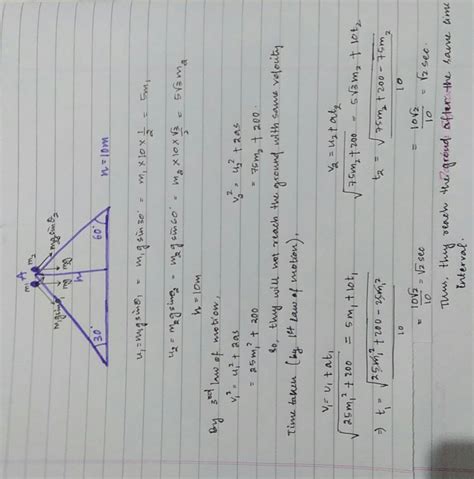 A
m₁ m₂
m₁gsinθ₁ mg mg m₂gsinθ₂
h
30° 60°
h=10m
u₁ = m₁gsinθ₁ = m₁gsin30° = m₁×10×1/2 = 5m₁
u₂ = m₂gsinθ₂ = m₂gsin60° = m₂×10×√3/2 = 5√3m₂
h = 10m
By 3rd law of motion,
v₁² = u₁² + 2as v₂² = u₂² + 2as
= 25m₁² + 200 = 75m₂ + 200.
So, they will not reach the ground with same velocity
Time taken (by 1st law of motion).
v₁ = u₁ + at₁ v₂ = u₂ + at₂
√(25m₁² + 200) = 5m₁ + 10t₁ √(75m₂ + 200) = 5√3m₂ + 10t₂
⇒ t₁ = √(25m₁² + 200 - 25m₁²)/10 t₂ = √(75m₂ + 200 - 75m₂)/10
= 10√2/10 = √2 sec = 10√2/10 = √2 sec.
Thus, they reach the ground after the same time
interval.